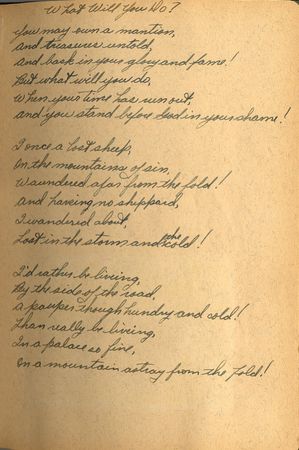 What Will You Do?
You may own a mantion,
And treasures untold,
And bask in your glory and fame!
But what will you do,
When your time has run out,
and you stand before God in your shame!
I once a lost sheep,
On the mountains of sin,
Waundered afar from the fold!
And having no sheppard,
I wandered about,
Lost in the storm and the cold!
I'd rather be living,
By the side of the road,
A pauper though hundry and cold!
Than really be living,
In a palace so fine,
On a mountain astray from the fold!